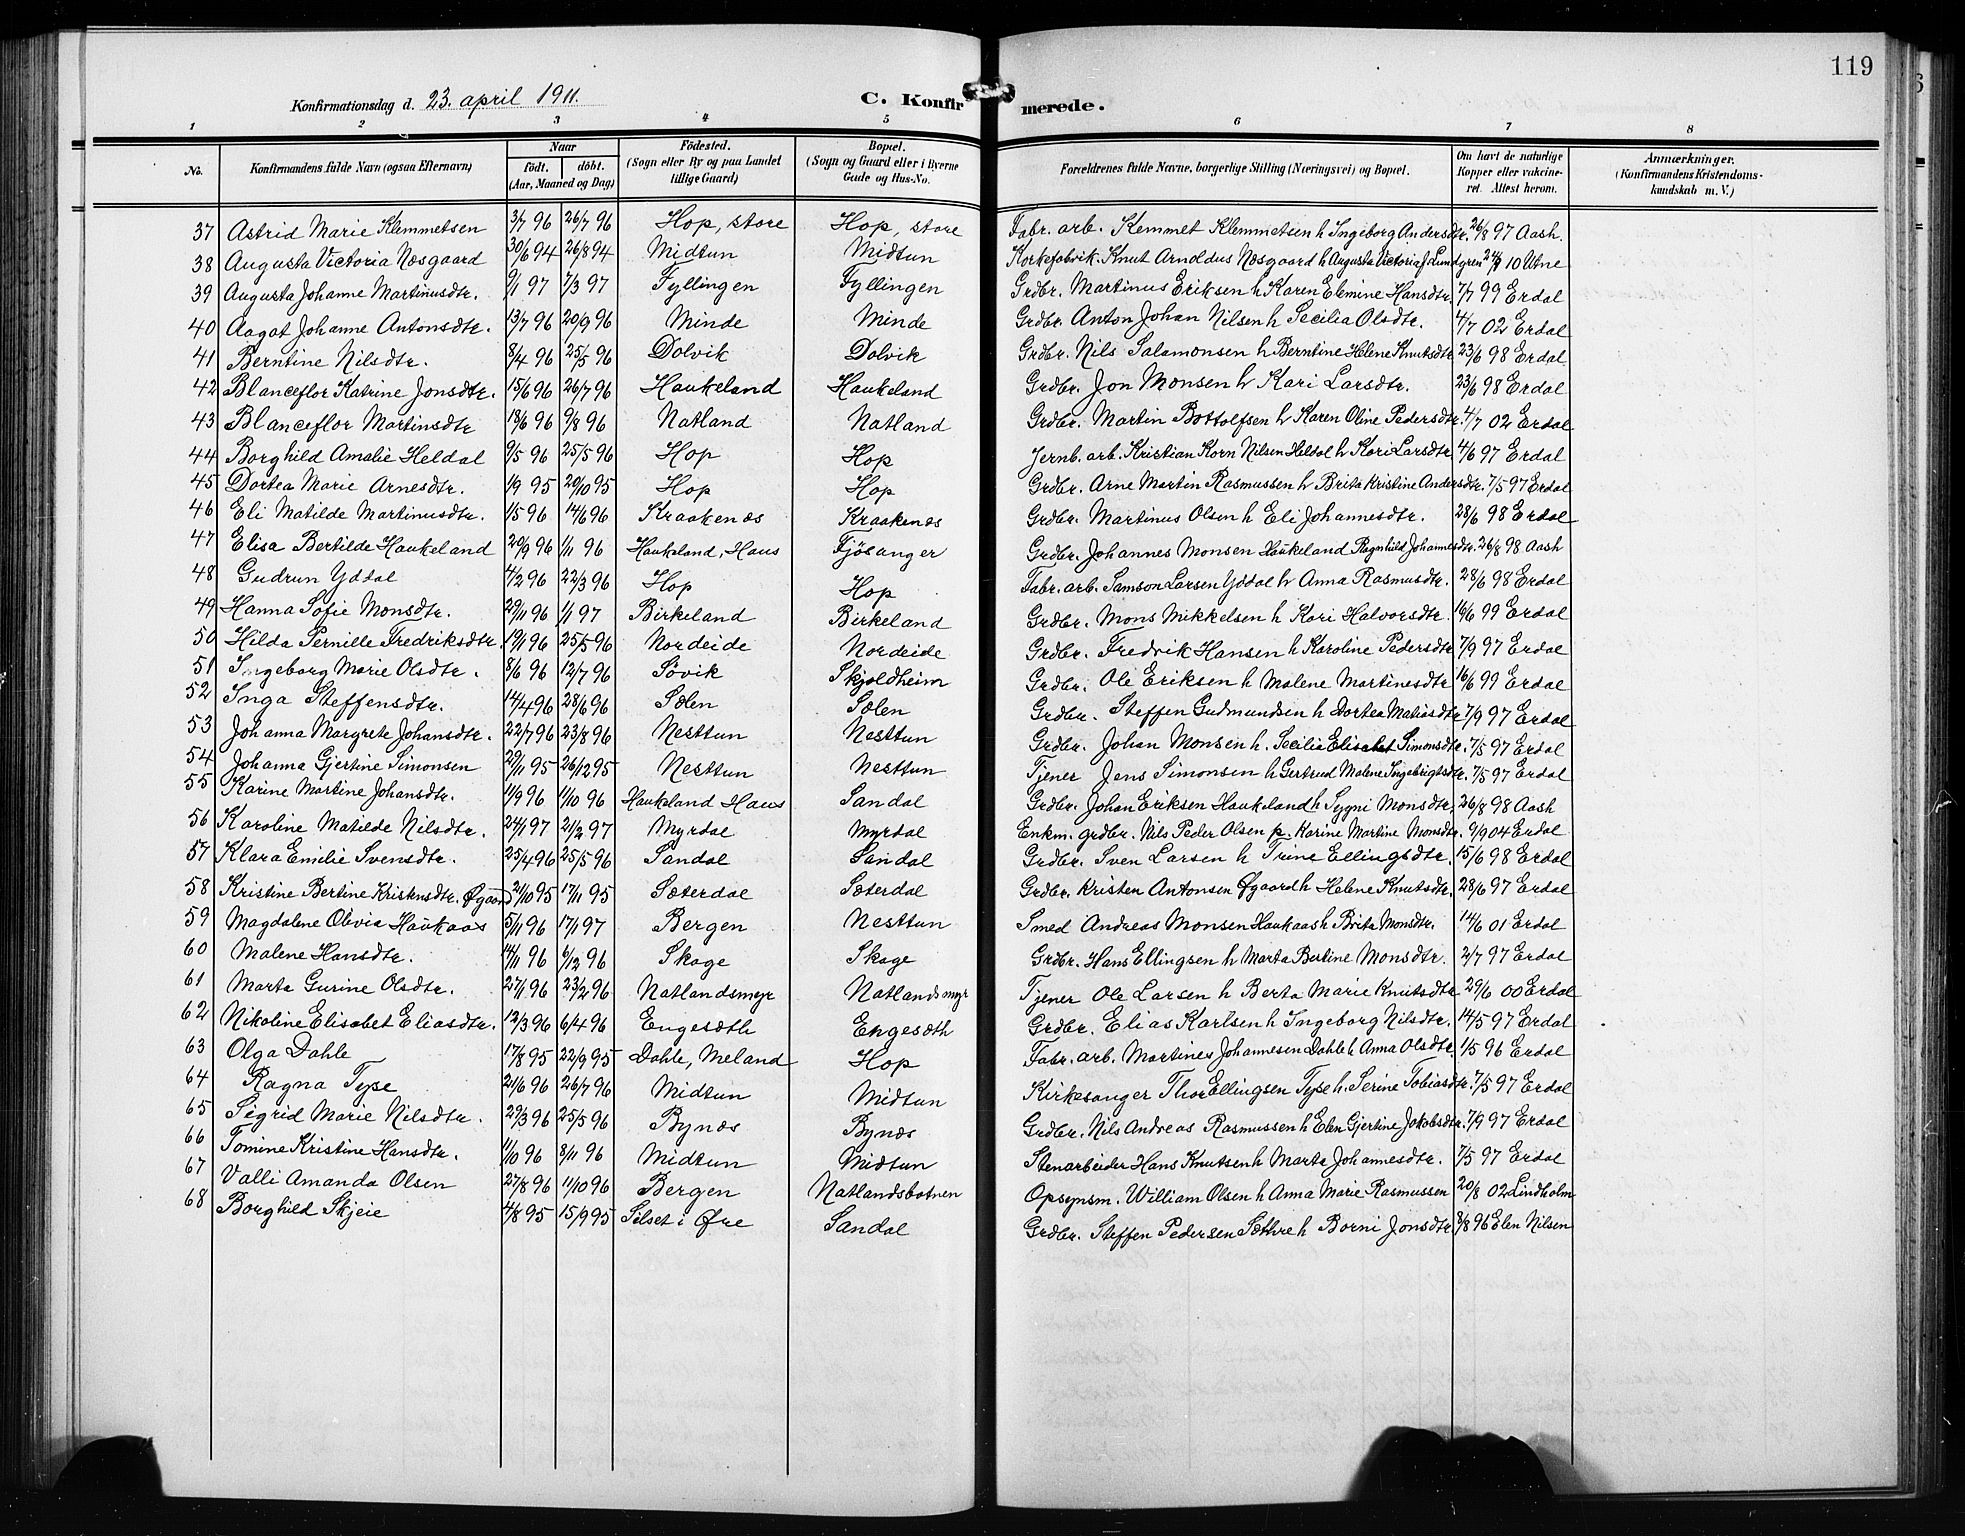 119
Konfirmationsdag d. 23. april 1911. C. Konfirmerede.
1 2 3 4 5 6 7 8
No. Konfirmandens fulde Navn (ogsaa Efternavn) Naar födt. döbt. (Aar, Maaned og Dag) Födested. (Sogn eller By og paa Landet tillige Gaard) Bopæl. (Sogn og Gaard eller i Byerne Gade og Hus-No. Forældrenes fulde Navne, borgerlige Stilling (Næringsvei) og Bopæl. Om havt de naturlige Kopper eller vakcineret. Attest herom. Anmærkninger. (Konfirmandens Kristendomskundskab m. V.)
37 Astrid Marie Klemmetsen 3/7 96 26/7 96 Hop, store Hop, store Fabr. arb. Kemmet Klemmetsen h Ingeborg Andersdtr. 26/8 97 Aash.
38 Augusta Victoria Næsgaard 30/6 94 26/8 94 Midtun Midtun Korkefabrik. Knut Arnoldus Næsgaard h Augusta Victoria J. Lundgren 10 Utne
39 Augusta Johanne Martinusdtr. 9/1 97 7/3 97 Fyllingen Fyllingen Grdbr. Martinus Eriksen h Karen Elemine Hansdtr. 7/7 99 Erdal
40 Aagot Johanne Antonsdtr. 13/7 96 20/9 96 Minde Minde Grdbr. Anton Johan Nilsen h Secilia Olsdtr. 4/7 02 Erdal
41 Berntine Nilsdtr. 8/4 96 25/5 96 Dolvik Dolvik Grdbr. Nils Salamonsen h Berntine Helene Knutsdtr 23/6 98 Erdal
42 Blanceflor Katrine Jonsdtr. 15/6 96 26/7 96 Haukeland Haukeland Grdbr. Jon Monsen h Kari Larsdtr. 23/6 98 Erdal
43 Blanceflor Martinsdtr 18/6 96 9/8 96 Natland Natland Grdbr. Martin Bottolfsen h Karen Oline Pedersdtr. 4/7 02 Erdal
44 Borghild Amalie Heldal 9/5 96 25/5 96 Hop Hop Jernb. arb. Kristian Korn Nilsen Heldal h Kari Larsdtr 4/6 97 Erdal
45 Dortea Marie Arnesdtr. 1/9 95 20/10 95 Hop Hop Grdbr. Arne Martin Rasmussen h Brita Kristine Andersdtr. 7/5 97 Erdal
46 Eli Matilde Martinusdtr. 1/5 96 14/6 96 Kraakenæs Kraakenæs Grdbr. Martinus Olsen h Eli Johannesdtr. 28/6 98 Erdal
47 Elisa Bertilde Haukeland 20/9 96 1/11 96 Haukeland, Haus Fjösanger Grdbr. Johannes Monsen Haukeland Ragnhild Johannesdtr. 26/8 98 Aash
48 Gudrun Yddal 4/2 96 22/3 96 Hop Hop Fabr. arb. Samson Larsen Yddal h Anna Rasmusdtr. 28/6 98 Erdal
49 Hanna Sofie Monsdtr. 29/11 96 1/1 97 Birkeland Birkeland Grdbr. Mons Mikkelsen h Kari Halvorsdtr. 16/6 99 Erdal
50 Hilda Pernille Fredriksdtr. 19/1 96 25/5 96 Nordeide Nordeide Grdbr. Fredrik Hansen h Karoline Pedersdtr 7/9 97 Erdal
51 Ingeborg Marie Olsdtr. 8/6 96 12/7 96 Sövik Skjoldheim Grdbr. Ole Eriksen h Malene Martinesdtr 16/6 99 Erdal
52 Inga Steffensdtr. 14/4 96 28/6 96 Sælen Sælen Grdbr. Steffen Gudmundsen h Dortea Matiasdtr 7/9 97 Erdal
53 Johanna Margrete Johansdtr. 22/7 96 23/8 96 Nesttun Nesttun Grdbr. Johan Monsen h. Secilia Elisabet Simonsdtr. 7/5 97 Erdal
54 Johanna Gjertine Simonsen 29/11 95 26/12 95 Nesttun Nesttun Tjener Jens Simonsen h Gertrud Malene Ingebrigtsdtr. 7/5 97 Erdal
55 Karine Martine Johansdtr. 11/9 96 11/10 96 Haukeland Haus Sandal Grdbr. Johan Eriksen Haukeland h Sygni Monsdtr. 26/8 98 Aash
56 Karoline Matilde Nilsdtr. 24/1 97 21/2 97 Myrdal Myrdal Enkm. grdbr. Nils Peder Olsen p. Karine Martine Monsdtr. 9/9 04 Erdal
57 Klara Emilie Svensdtr. 25/4 96 25/5 96 Sandal Sandal Grdbr. Sven Larsen h Trine Ellingsdtr. 15/6 98 Erdal
58 Kristine Bertine Kristensdtr. Øgaard 21/10 95 17/11 95 Sæterdal Sæterdal Grdbr. Kristen Antonsen Øgaard h Helene Knutsdtr. 28/6 97 Erdal
59 Magdalene Olivia Haukaas 5/11 96 17/1 97 Bergen Nesttun Smed Andreas Monsen Haukaas h Brita Monsdtr. 14/6 01 Erdal
60 Malene Hansdtr. 14/11 96 6/12 96 Skage Skage Grdbr. Hans Ellingsen h Marta Bertine Monsdtr. 2/7 97 Erdal
61 Marta Gurine Olsdtr. 27/1 96 23/2 96 Natlandsmyr Natlandsmyr Tjener Ole Larsen h Berta Marie Knutsdtr 29/6 00 Erdal
62 Nikoline Elisabet Eliasdtr. 12/3 96 6/4 96 Engesæth Engesæth Grdbr. Elias Karlsen h Ingeborg Nilsdtr. 14/5 97 Erdal
63 Olga Dahle 17/8 95 22/9 95 Dahle, Meland Hop Fabr. arb. Martines Johannesen Dahle h Anna Olsdtr 1/5 96 Erdal
64 Ragna Tyse 21/6 96 26/7 96 Midtun Midtun Kirkesanger Thor Ellingsen Tyse h. Serine Tobiasdtr. 7/5 97 Erdal
65 Sigrid Marie Nilsdtr. 29/3 96 25/5 96 Bynæs Bynæs Grdbr. Nils Andreas Rasmussen h Elen Gjertine Jakobsdtr. 7/9 97 Erdal
66 Tomine Kristine Hansdtr. 1/10 96 8/11 96 Midtun Midtun Stenarbeider Hans Knutsen h Marta Johannesdtr. 7/5 97 Erdal
67 Valli Amanda Olsen 27/8 96 11/10 96 Bergen Natlandsbotnen Opsynsm. William Olsen h Anna Marie Rasmussen 20/8 02 Lindholm
68 Borghild Skjeie 4/8 95 15/9 95 Silset i Øre Sandal Grdbr. Steffen Pedersen Sæthre h Borni Jonsdtr. 8/8 96 Elen Nilsen